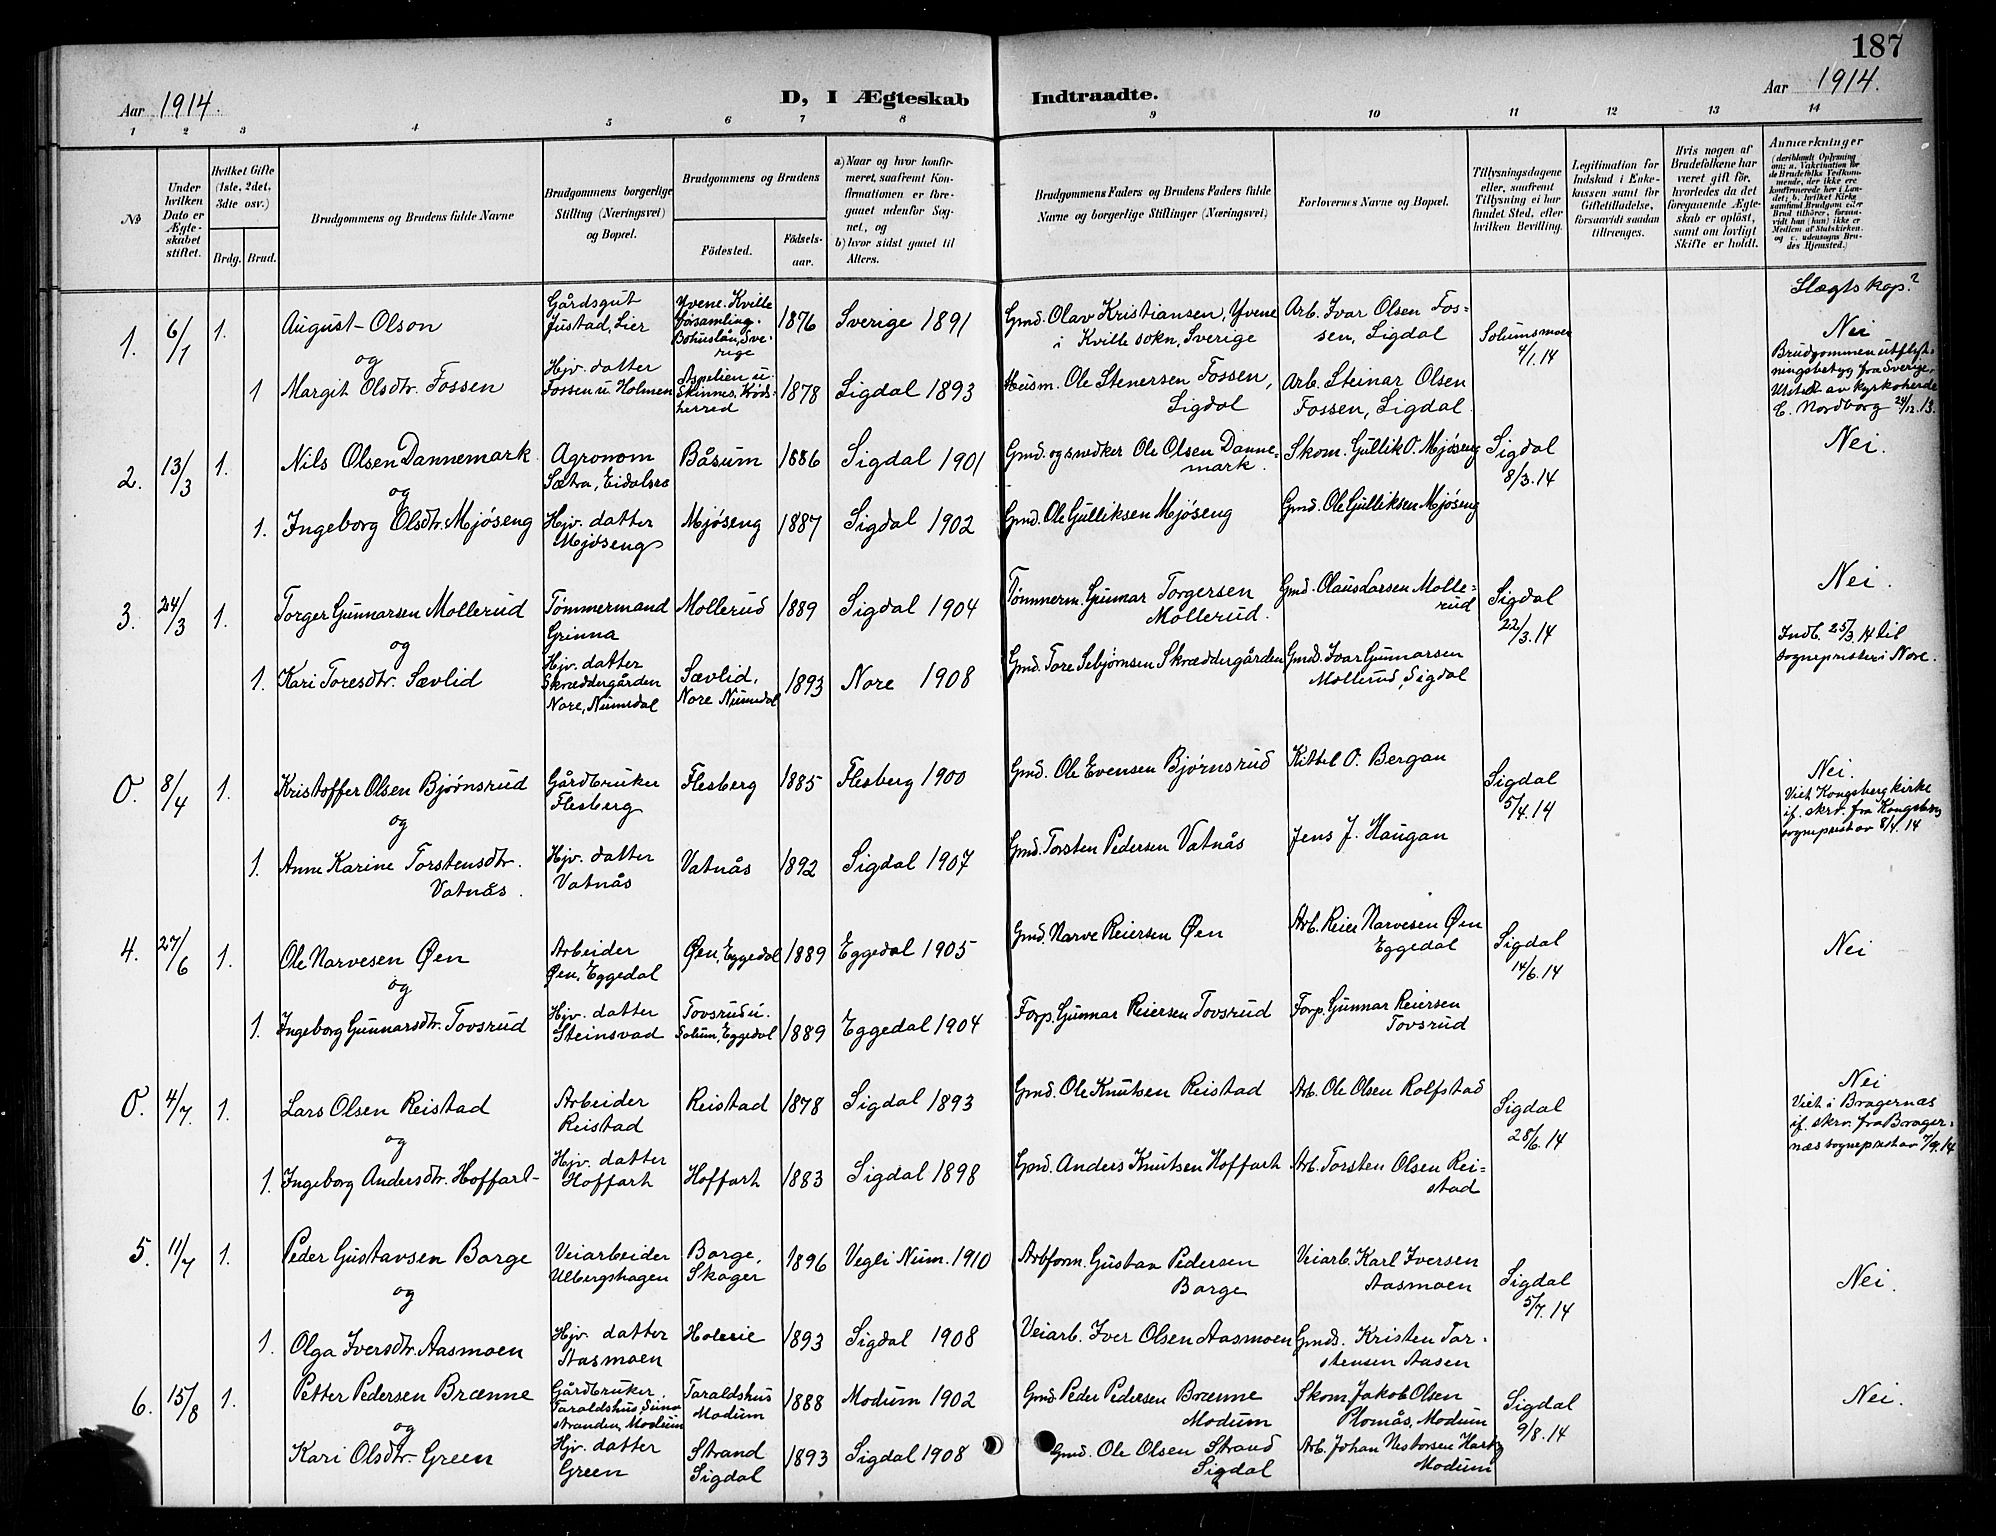 187
Aar 1914.
D, I Ægteskab Indtraadte.
Aar 1914.
1 2 3 4 5 6 7 8 9 10 11 12 13 14
No
Under hvilken Dato er Ægteskabet stiftet.
Hvilket Gifte (1ste, 2det, 3dte osv.)
Brdg. Brud.
Brudgommens og Brudens fulde Navne
Brudgommens borgerlige Stilling (Næringsvei) og Bopæl.
Brudgommens og Brudens
Fødested.
Fødselsaar.
a) Naar og hvor konfirmeret, saafremt Konfirmationen er foregaaet udenfor Sognet, og
b) hvor sidst gaaet til Alters.
Brudgommens Faders og Brudens Faders fulde Navne og borgerlige Stillinger (Næringsvei)
Forlovernes Navne og Bopæl.
Tillysningsdagene eller, saafremt Tillysning ei har fundet Sted, efter hvilken Bevilling.
Legitimation for Indskud i Enkekassen samt for Giftetilladelse, forsaavidt saadan tiltrænges.
Hvis nogen af Brudefolkene har været gift før, hvorledes da det foregaaende Ægteskab er opløst, samt om lovligt Skifte er holdt.
Anmærkninger
(deriblandt Oplysning om: a. Vakcination for de Brudefolks Vedkommende, der ikke ere konfirmerede her i Landet; b. hvilket Kirkesamfund Brudgom eller Brud tilhører, forsaavidt han (hun) ikke er Medlem af Statskirken. og c. udensogns Brudes Hjemsted.)
Slægtskap?
1. 6/1 1. August Olson
Gårdsgut Justad, Lier
Yvene. Kville församling. Bohuslän, Sverige
1876 Sverige 1891
Gmd. Olav Kristiansen, Yvene i Kville sokn, Sverige
Arb. Ivar Olsen Fossen, Sigdal
Solumsmoen 4/1.14
Nei
Brudgommen utflytningsbetyg fra Sverige, Utstedt av kyrkoherde C. Nordborg 24/12.13.
og
1 Margit Olsdtr. Fossen
Hjv. datter Fossen u. Holmen
Skinnes, Krødsherred
1878 Sigdal 1893
Husm. Ole Stenersen Fossen, Sigdal
Arb. Steinar Olsen Fossen, Sigdal.
2. 13/3 1. Nils Olsen Dannemark.
Agronom Sætra, Eidalsro
Båsum 1886 Sigdal 1901
Gmd. og snedker Ole Olsen Dannemark.
Skom. Gullik O. Mjøseng
Sigdal 8/3.14
Nei.
og
1. Ingeborg Olsdtr. Mjøseng
Hjv. datter Mjøseng
Mjøseng 1887 Sigdal 1902
Gmd. Ole Gulliksen Mjøseng
Gmd. Ole Gulliksen Mjøseng
3. 24/3 1. Torger Gunnarsen Mollerud
Tømmermand Grinna
Mollerud 1889 Sigdal 1904
Tømmerm. Gunnar Torgersen Mollerud.
Gmd. Olaus Larsen Mollerud
Sigdal 22/3.14
Nei.
Indb. 25/3.14 til sognepresten i Nore.
og
1. Kari Toresdtr. Sævlid
Hjv. datter Skræddergården Nore, Numedal
Sævlid, Nore Numedal
1893 Nore 1908
Gmd. Tore Sebjørnsen Skræddergården
Gmd. Ivar Gunnarsen Mollerud, Sigdal
O. 8/4 1. Kristoffer Olsen Bjørnsrud
Gårdbruker Flesberg
Flesberg 1885 Flesberg 1900
Gmd. Ole Evensen Bjørnsrud
Kittel O. Bergan
Sigdal 5/4.14
Nei.
Viet Kongsberg kirke if. skr. fra Kongsberg sogneprest av 8/4.14
og
1. Anne Karine Torstensdtr. Vatnås.
Hjv. datter Vatnås
Vatnås 1892 Sigdal 1907
Gmd. Torsten Pedersen Vatnås
Jens J. Haugan
4. 27/6 1. Ole Narvesen Øen
Arbeider Øen, Eggedal
Øen, Eggedal 1889 Eggedal 1905
Gmd. Narve Reiersen Øen
Arb. Reier Narvesen Øen Eggedal
Sigdal 14/6.14
Nei
og
1. Ingeborg Gunnarsdtr. Tovsrud
Hjv. datter Steinsvad
Tovsrud u. Solum, Eggedal
1889 Eggedal 1904
Forp. Gunnar Reiersen Tovsrud
Forp. Gunnar Reiersen Tovsrud
O. 4/7. 1. Lars Olsen Reistad
Arbeider Reistad
Reistad 1878 Sigdal 1893
Gmd. Ole Knutsen Reistad
Arb. Ole Olsen Rolfstad
Sigdal 28/6.14
Nei
Viet i Bragernæs if. skr. fra Bragernæs sogneprest av 7/9.14
og
1. Ingeborg Andersdtr. Hoffart
Hjv. datter Hoffart
Hoffart 1883 Sigdal 1898
Gmd. Anders Knutsen Hoffart
Arb. Torsten Olsen Reistad
5. 11/7 1. Peder Gustavsen Borge
Veiarbeider Ulbergshagen
Borge, Skoger
1896 Vegli Num. 1910
Arbform. Gustav Pedersen Borge
Veiarb. Karl Iversen Aasmoen
Sigdal 5/7.14
Nei.
og
1. Olga Iversdtr. Aasmoen
Hjv. datter Aasmoen
1893 Sigdal 1908
Veiarb. Iver Olsen Aasmoen
Gmd. Kristen Torstensen Aasen
6. 15/8 1. Petter Pedersen Brænne
Gårdbruker. Taraldshus, Simostranden, Modum
Taraldshus Modum
1888 Modum 1902
Gmd. Peder Pedersen Brænne Modum
Skom. Jakob Olsen Plomås, Modum
Sigdal 9/8.14
Nei.
og
Kari Olsdtr. Green
Hjv. datter Green
Strand Sigdal
1893 Sigdal 1908
Gmd. Ole Olsen Strand Sigdal
Arb. Johan Nestorsen Modum